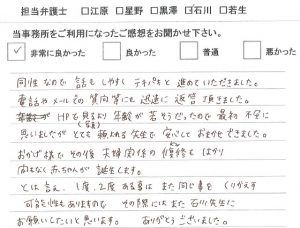 担当弁護士 □江原 □星野 □黒澤 ☑石川 □若生
当事務所をご利用になったご感想をお聞かせ下さい。
☑ 非常に良かった □ 良かった □ 普通 □ 悪かった
同性なので話もしやすく テキパキと進めていただきました。
電話やメールでの質問等にも 迅速に返答頂きました。
HPで見るより年齢が若そうだったので 最初 不安に
思いましたが とても頼れる先生で 安心しておまかせできました。
おかげ様で その後 夫婦関係の修復も はかり
間もなく赤ちゃんが誕生します。
とは言え、1度、2度ある事は また同じ事を くりかえす
可能性もありますので その際には また 石川先生に
お願いしたいと思います。 ありがとうございました。